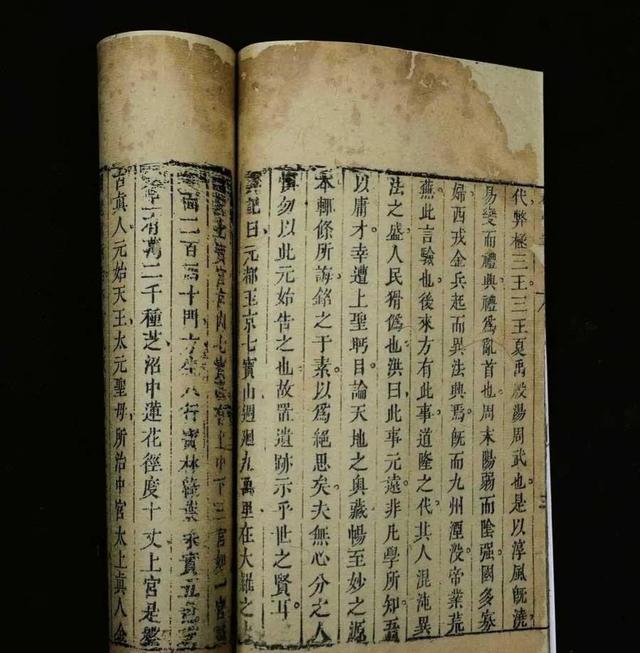 代弊極三王三王夏禹殷湯周武也是以淳風既澆
易變而禮興禮爲亂首也周末陽弱而陰强國多寡
婦西戎金兵起而異法興焉旣而九州湮没帝業荒
蕪此言驗也後來方有此事道隆之代其人混沌異
法之盛人民猾僞也洪曰此事元遠非凡學所知吾
以庸才幸遭上聖眄目論天地之奥藏暢至妙之源
本輒條所誨銘之于素以爲絕思矣夫無心分之人
愼勿以此元始告之也故罟遺跡示乎世之賢耳
記曰元都玉京七寳山週廻九萬里在大羅之上
七寳宮宮内七寳臺有上中下三宮如一宮
面二百四十門方生八行寳林綠葉朱實五色芝
上有萬二千種芝沼中蓮花徑度十丈上宮是盤
古眞人元始天王太元聖母所治中宮太上眞人金